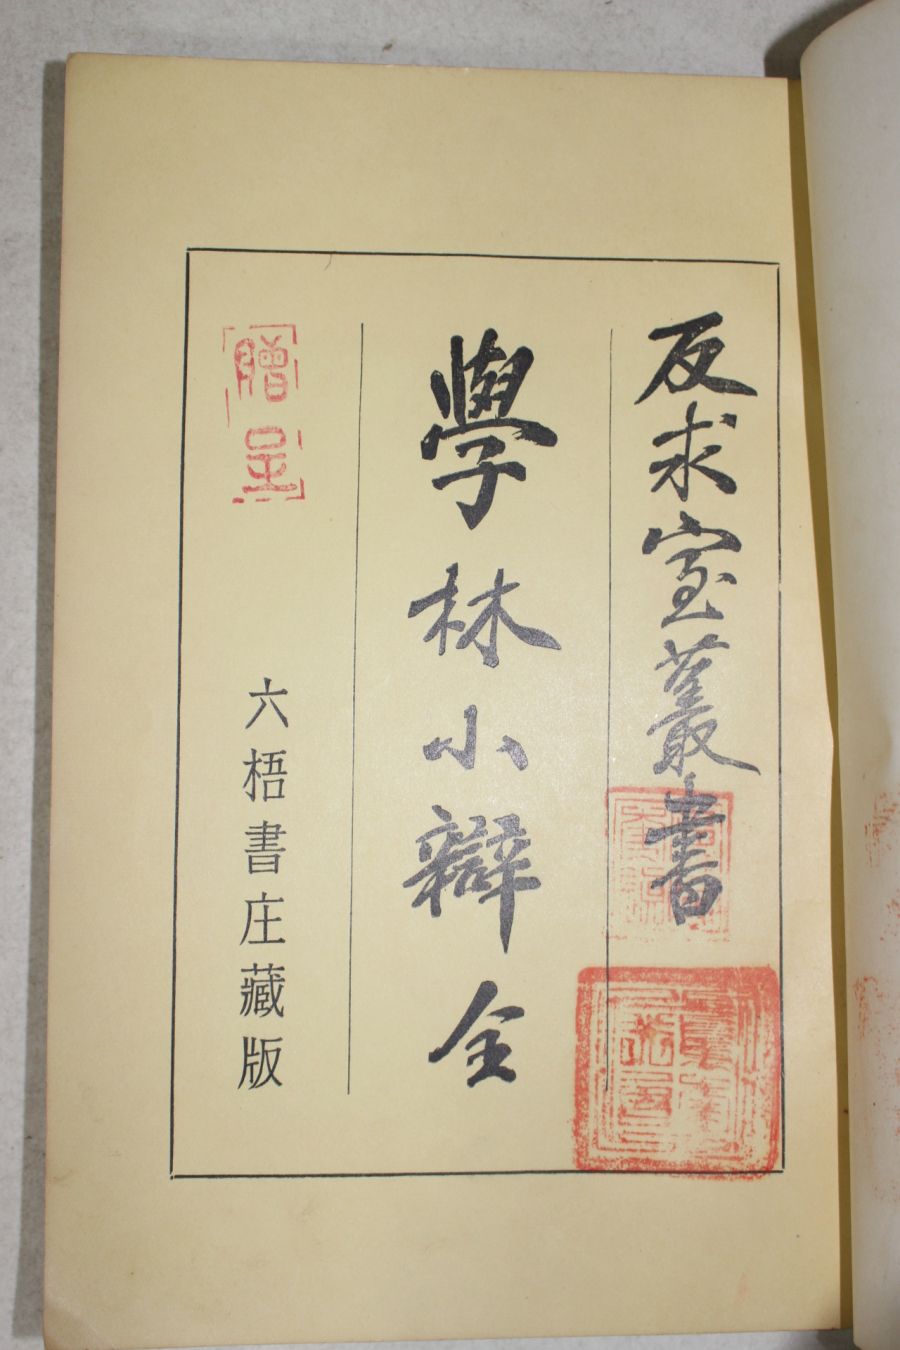 反求室叢書
學林小辯 全
贈呈
六梧書庄藏版